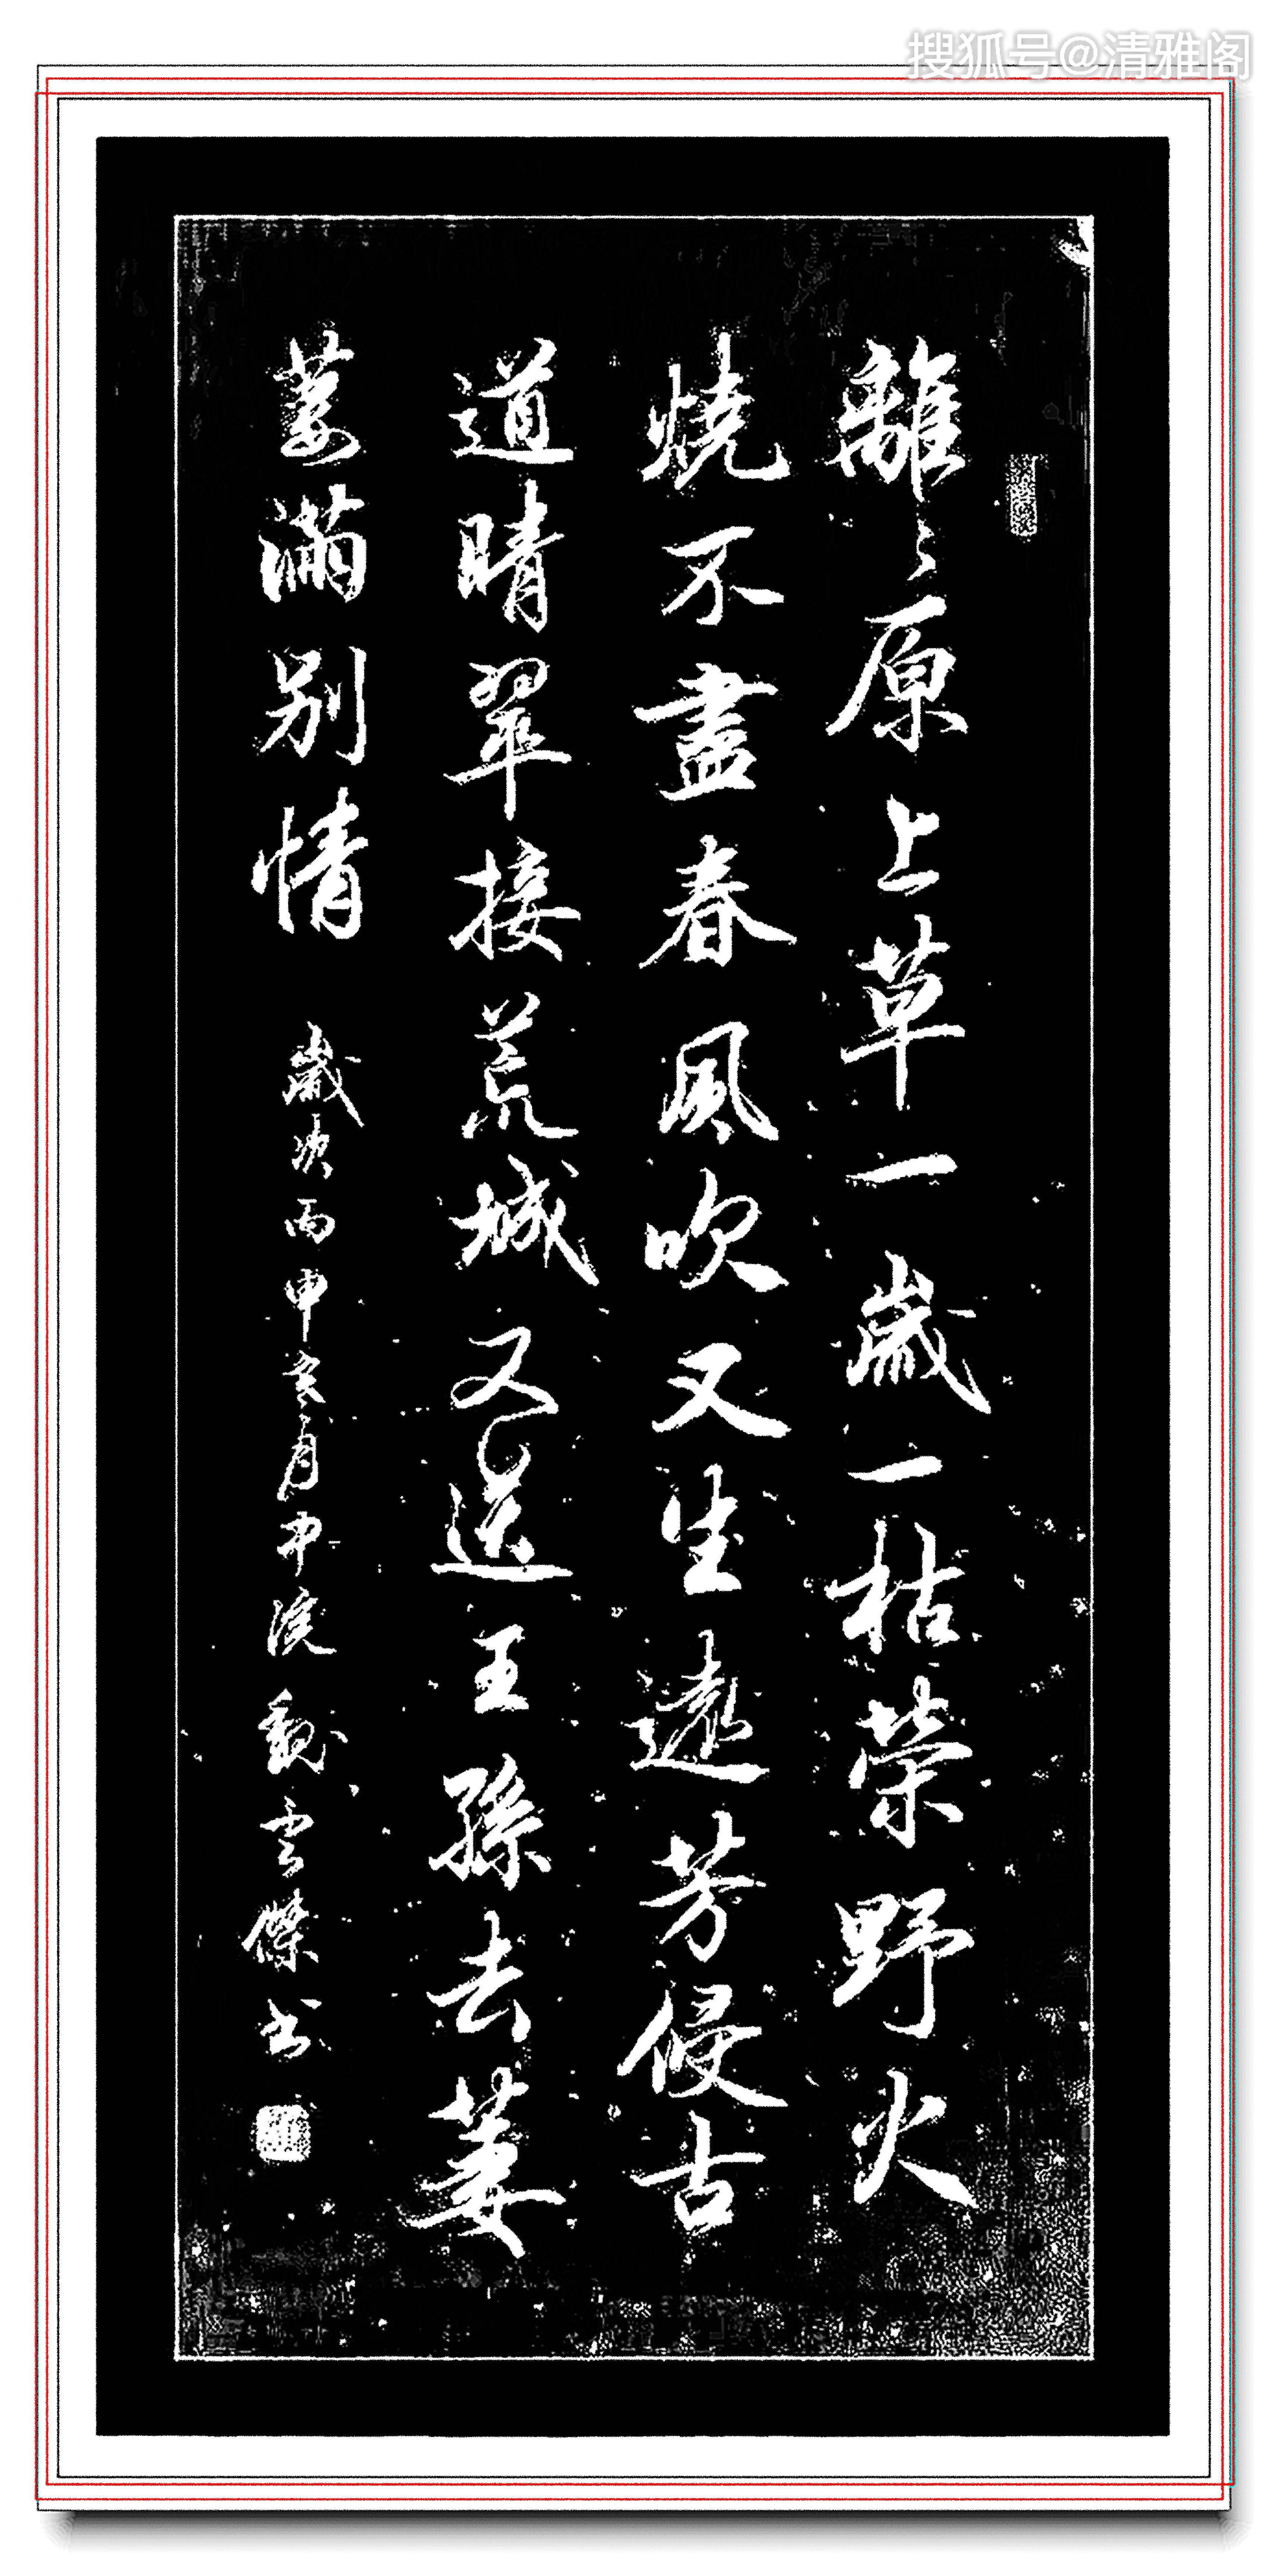 搜狐号@清雅阁
離〻原上草一歲一枯榮野火
燒不盡春風吹又生遠芳侵古
道晴翠接荒城又送王孫去萋
萋滿別情 歲次丙申亥月中浣魏雲傑書